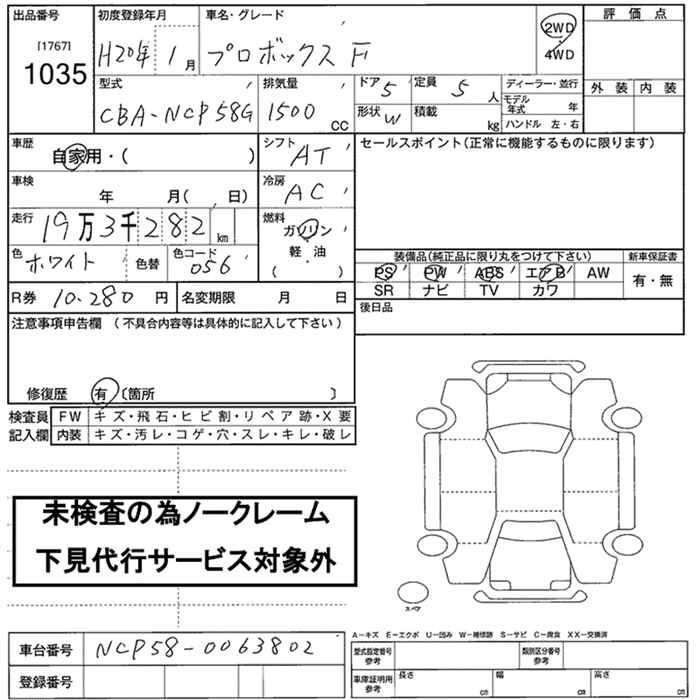 出品番号 初度登録年月 車名・グレード 評価点
[1767]
1035
H20年 1月 プロボックス F 2WD
4WD
型式 排気量 ドア 5 定員 5人 ディーラー・並行 外装 内装
CBA-NCP58G 1500cc 形状 W 積載 kg モデル年式 年
ハンドル 左・右
車歴 自家用・( ) シフト AT セールスポイント(正常に機能するものに限ります)
車検 年 月( 日) 冷房 AC
走行 19万3千282km 燃料 ガソリン
軽・油
( )
色 ホワイト 色替 色コード 056 装備品(純正品に限り丸をつけて下さい) 新車保証書
PS PW ABS エアB AW 有・無
SR ナビ TV カワ
R券 10.280円 名変期限 月 日 後日品
注意事項申告欄 (不具合内容等は具体的に記入して下さい)
修復歴 有 〔箇所 〕
検査員 FW キズ・飛石・ヒビ割・リペア跡・X要
記入欄 内装 キズ・汚レ・コゲ・穴・スレ・キレ・破レ
未検査の為ノークレーム
下見代行サービス対象外
スペア
A―キズ E―エクボ U―凹み W―補修跡 S―サビ C―腐食 XX―交換済
車台番号 NCP58-0063802 型式指定番号 参考 類別区分番号 参考
登録番号 車庫証明用参考 長さ cm 幅 cm 高さ cm